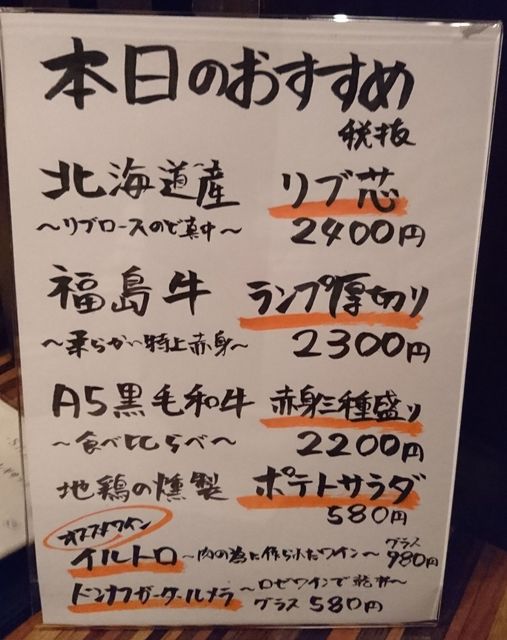 本日のおすすめ
税抜
北海道産 リブ芯
～リブロースのど真中～ 2400円
福島牛 ランプ厚切り
～柔らかい特上赤身～ 2300円
A5黒毛和牛 赤身三種盛り
～食べ比らべ～ 2200円
地鶏の燻製 ポテトサラダ
580円
オススメワイン
イルトロ ～肉の為に作られたワイン～ グラス 980円
ドンナフガータ・ルメラ ～ロゼワインで乾杯～
グラス 580円